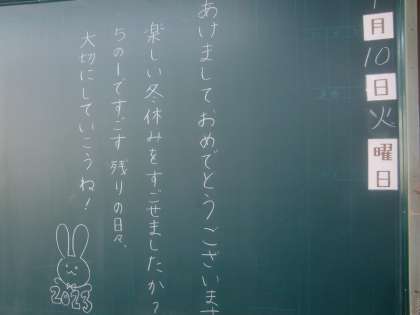 月10日火曜日
あけましておめでとうございま
楽しい冬休みをすごせましたか?
5の1ですごす残りの日々、
大切にしていこうね!
2023